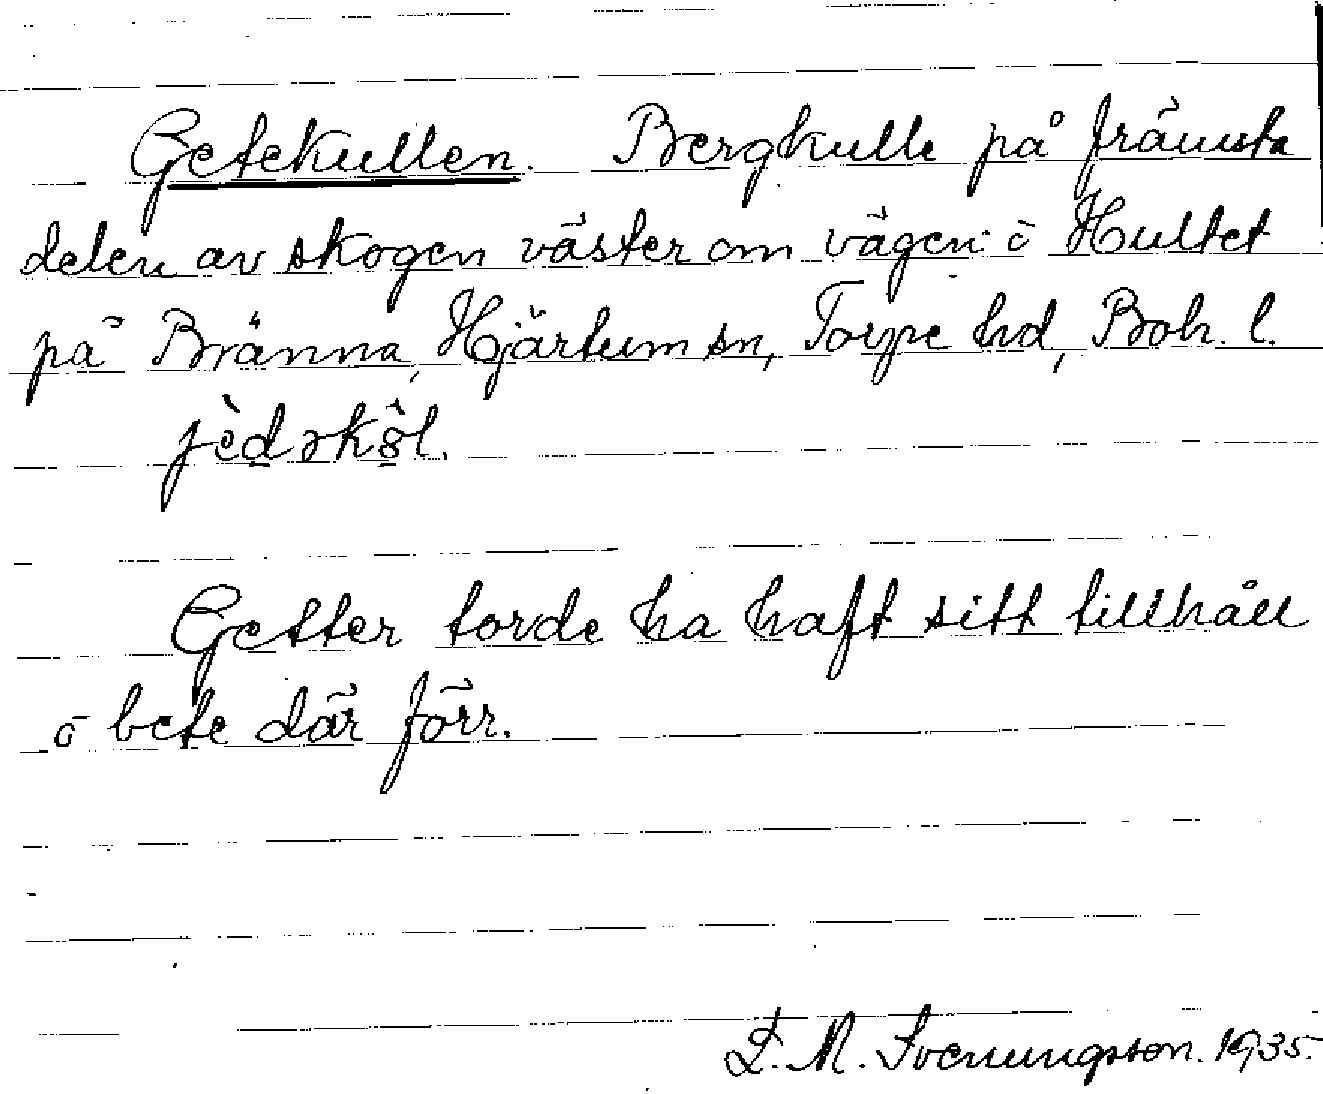 Getekullen. Bergkulle på främsta
delen av skogen väster om vägen ō Hultet
på Bränna, Hjärtum sn, Torpe hd, Boh. l.
jèdəkôl.
Getter torde ha haft sitt tillhåll
ō bete där förr.
L. M. Svenungsson. 1935.